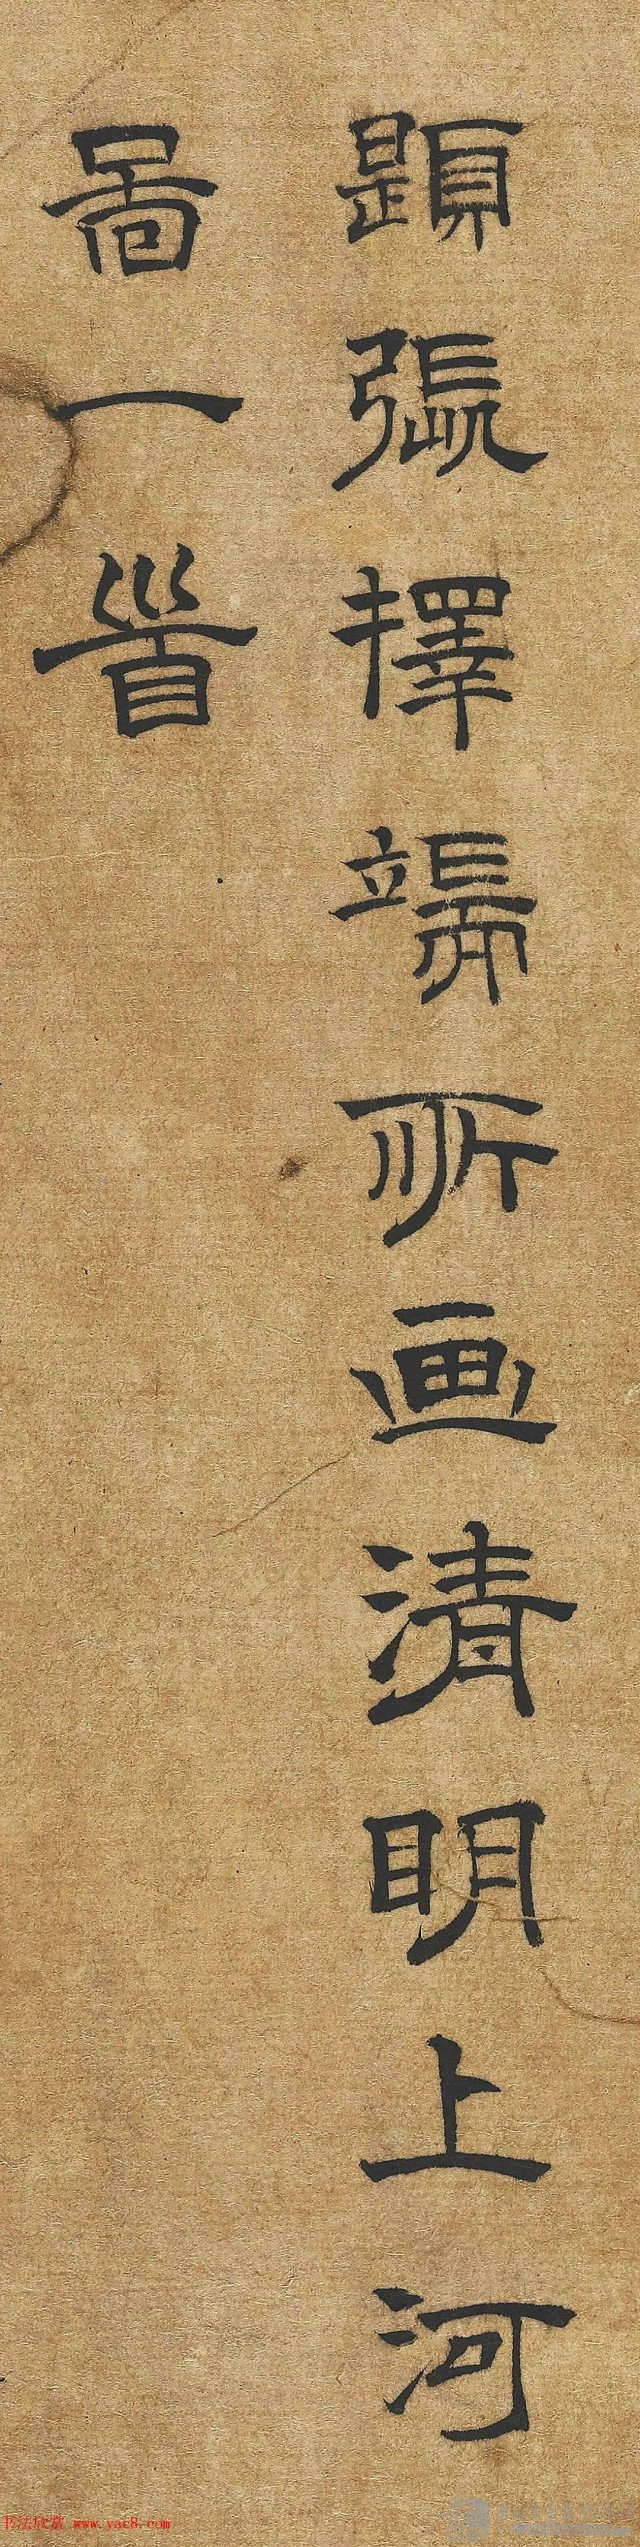 題張擇端所画清明上河
啚一首
书法欣赏 www.yac8.com